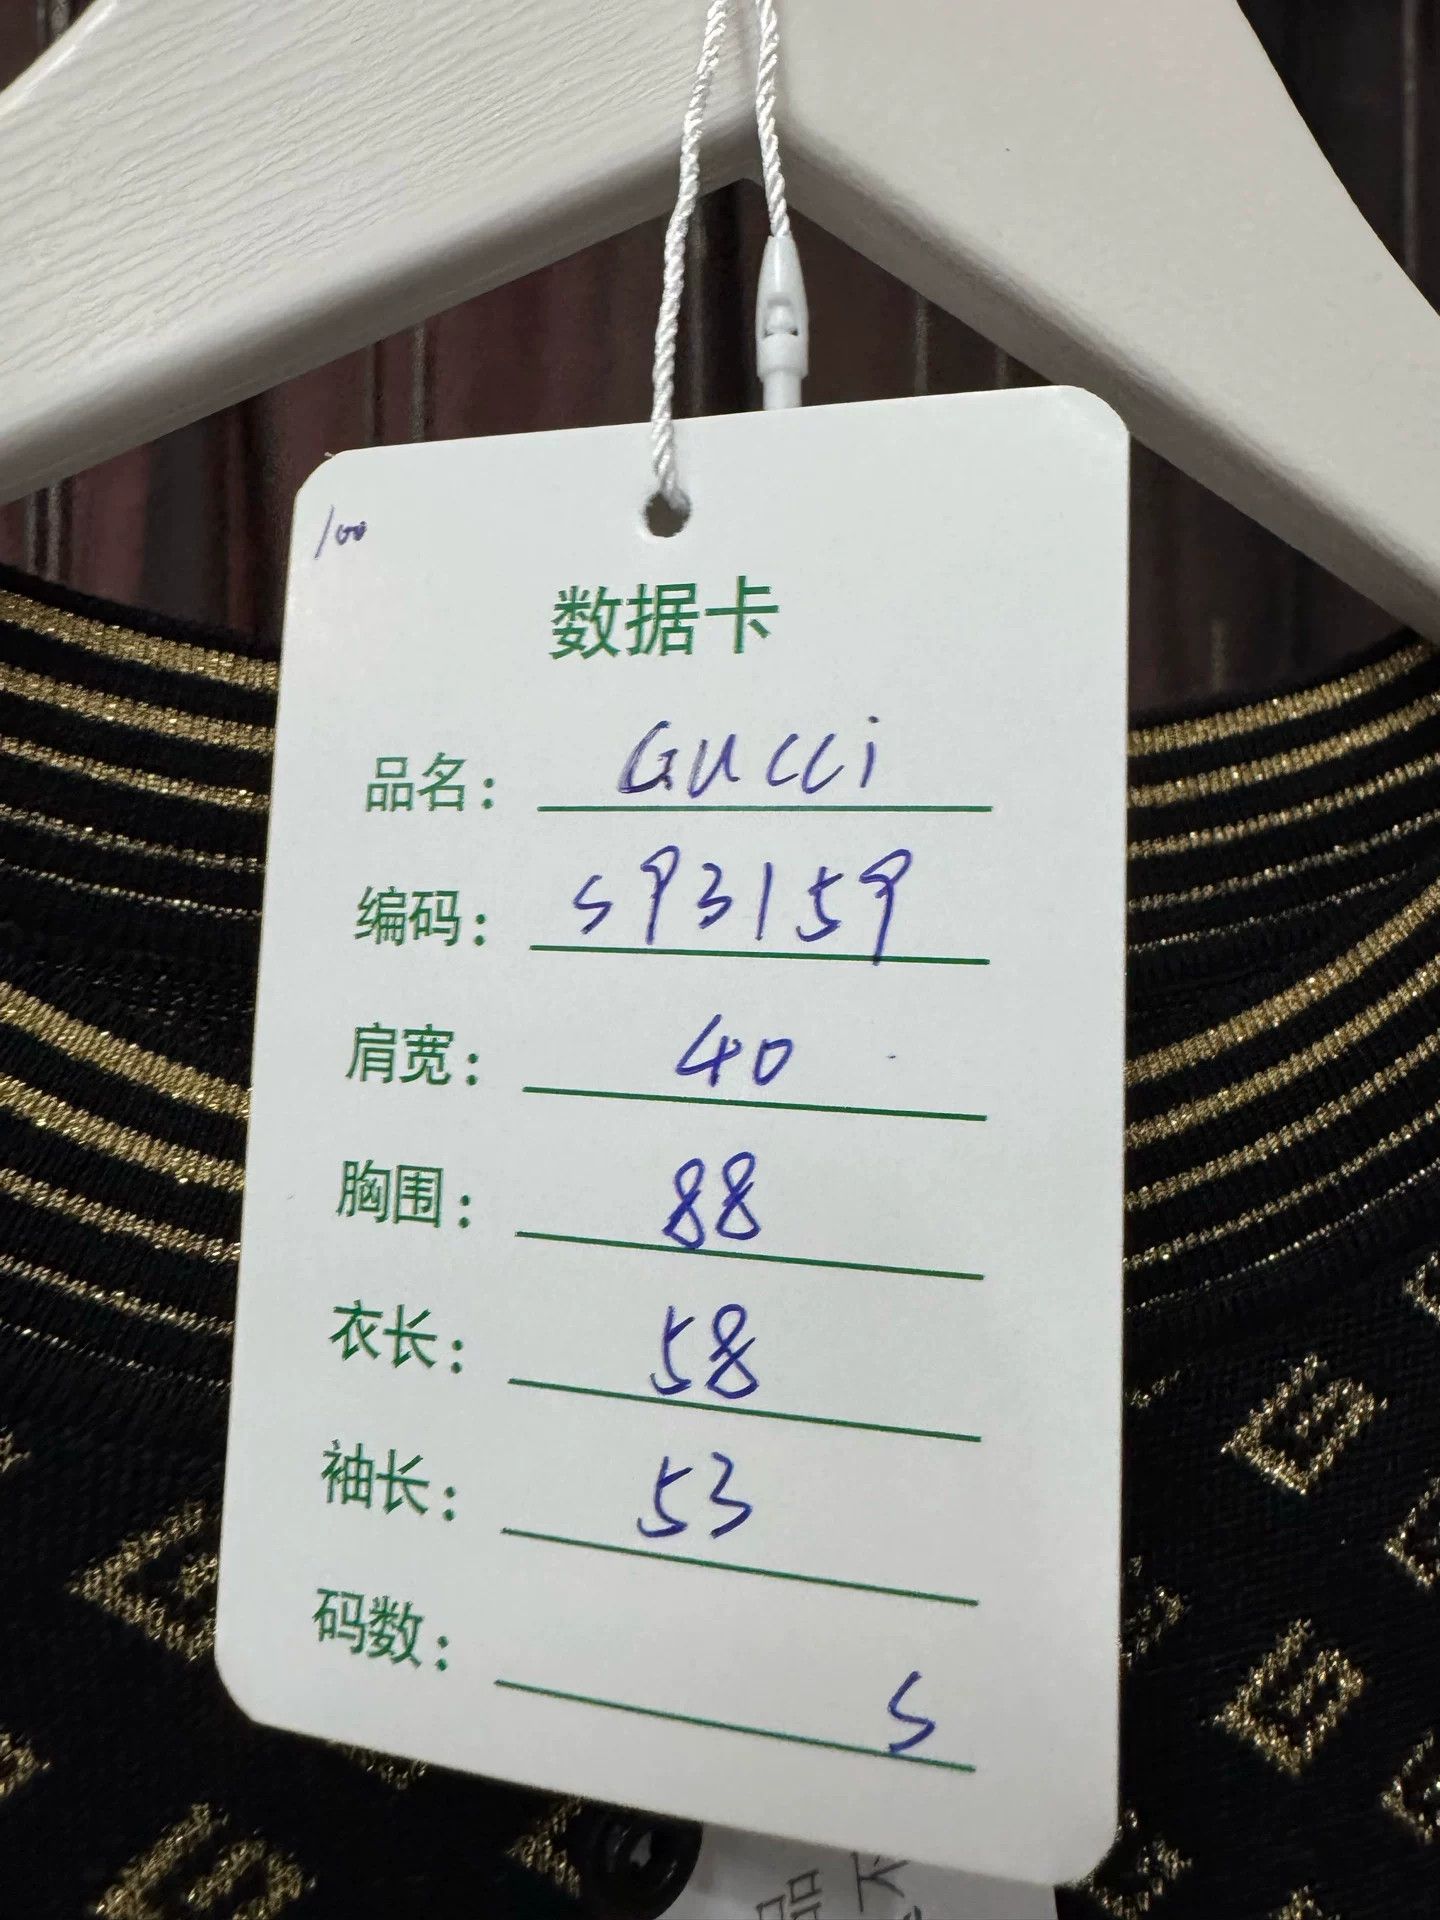 100
数据卡
品名: Gucci
编码: S93159
肩宽: 40
胸围: 88
衣长: 58
袖长: 53
码数: S
品